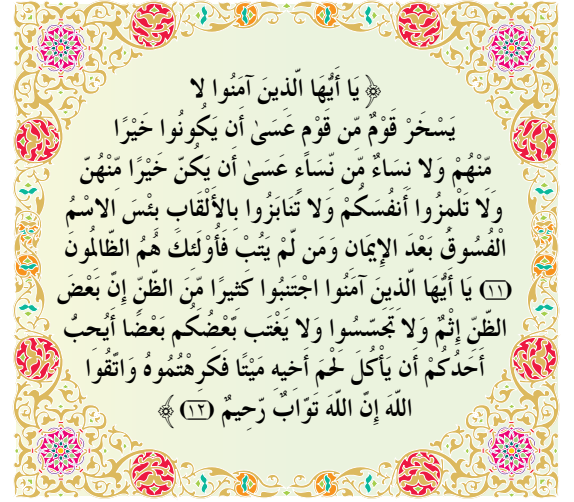 ﴿ يَا أَيُّهَا الّذينَ آمَنُوا لا
يَسْخَرْ قَوْمٌ مِّن قَوْم عَسَىٰ أَن يَكُونُوا خَيْرًا
مِّنْهُمْ وَلا نِسَاءٌ مِّن نِّسَاءٍ عَسَىٰ أَن يَكُنّ خَيْرًا مِّنْهُنّ
وَلا تَلْمِزُوا أَنفُسَكُمْ وَلا تَنَابَزُوا بِالأَلْقَابِ بِئْسَ الاسْمُ
الْفُسُوقُ بَعْدَ الإِيمَان وَمَن لّمْ يَتُبْ فَأُوْلَئكَ هُمُ الظّالمُونَ
(١١) يَا أَيُّهَا الّذينَ آمَنُوا اجْتَنبُوا كَثيرًا مِّنَ الظّنّ إنّ بَعْضَ
الظّنّ إثْمٌ وَلا تَجَسّسُوا وَلا يَغْتَب بّعْضُكُم بَعْضًا أَيُحبُّ
أَحَدُكُمْ أَن يَأْكُلَ لَحْمَ أَخيه مَيْتًا فَكَرهْتُمُوهُ وَاتّقُوا
اللّهَ إنّ اللّهَ تَوّابٌ رّحِيمٌ (١٢) ﴾